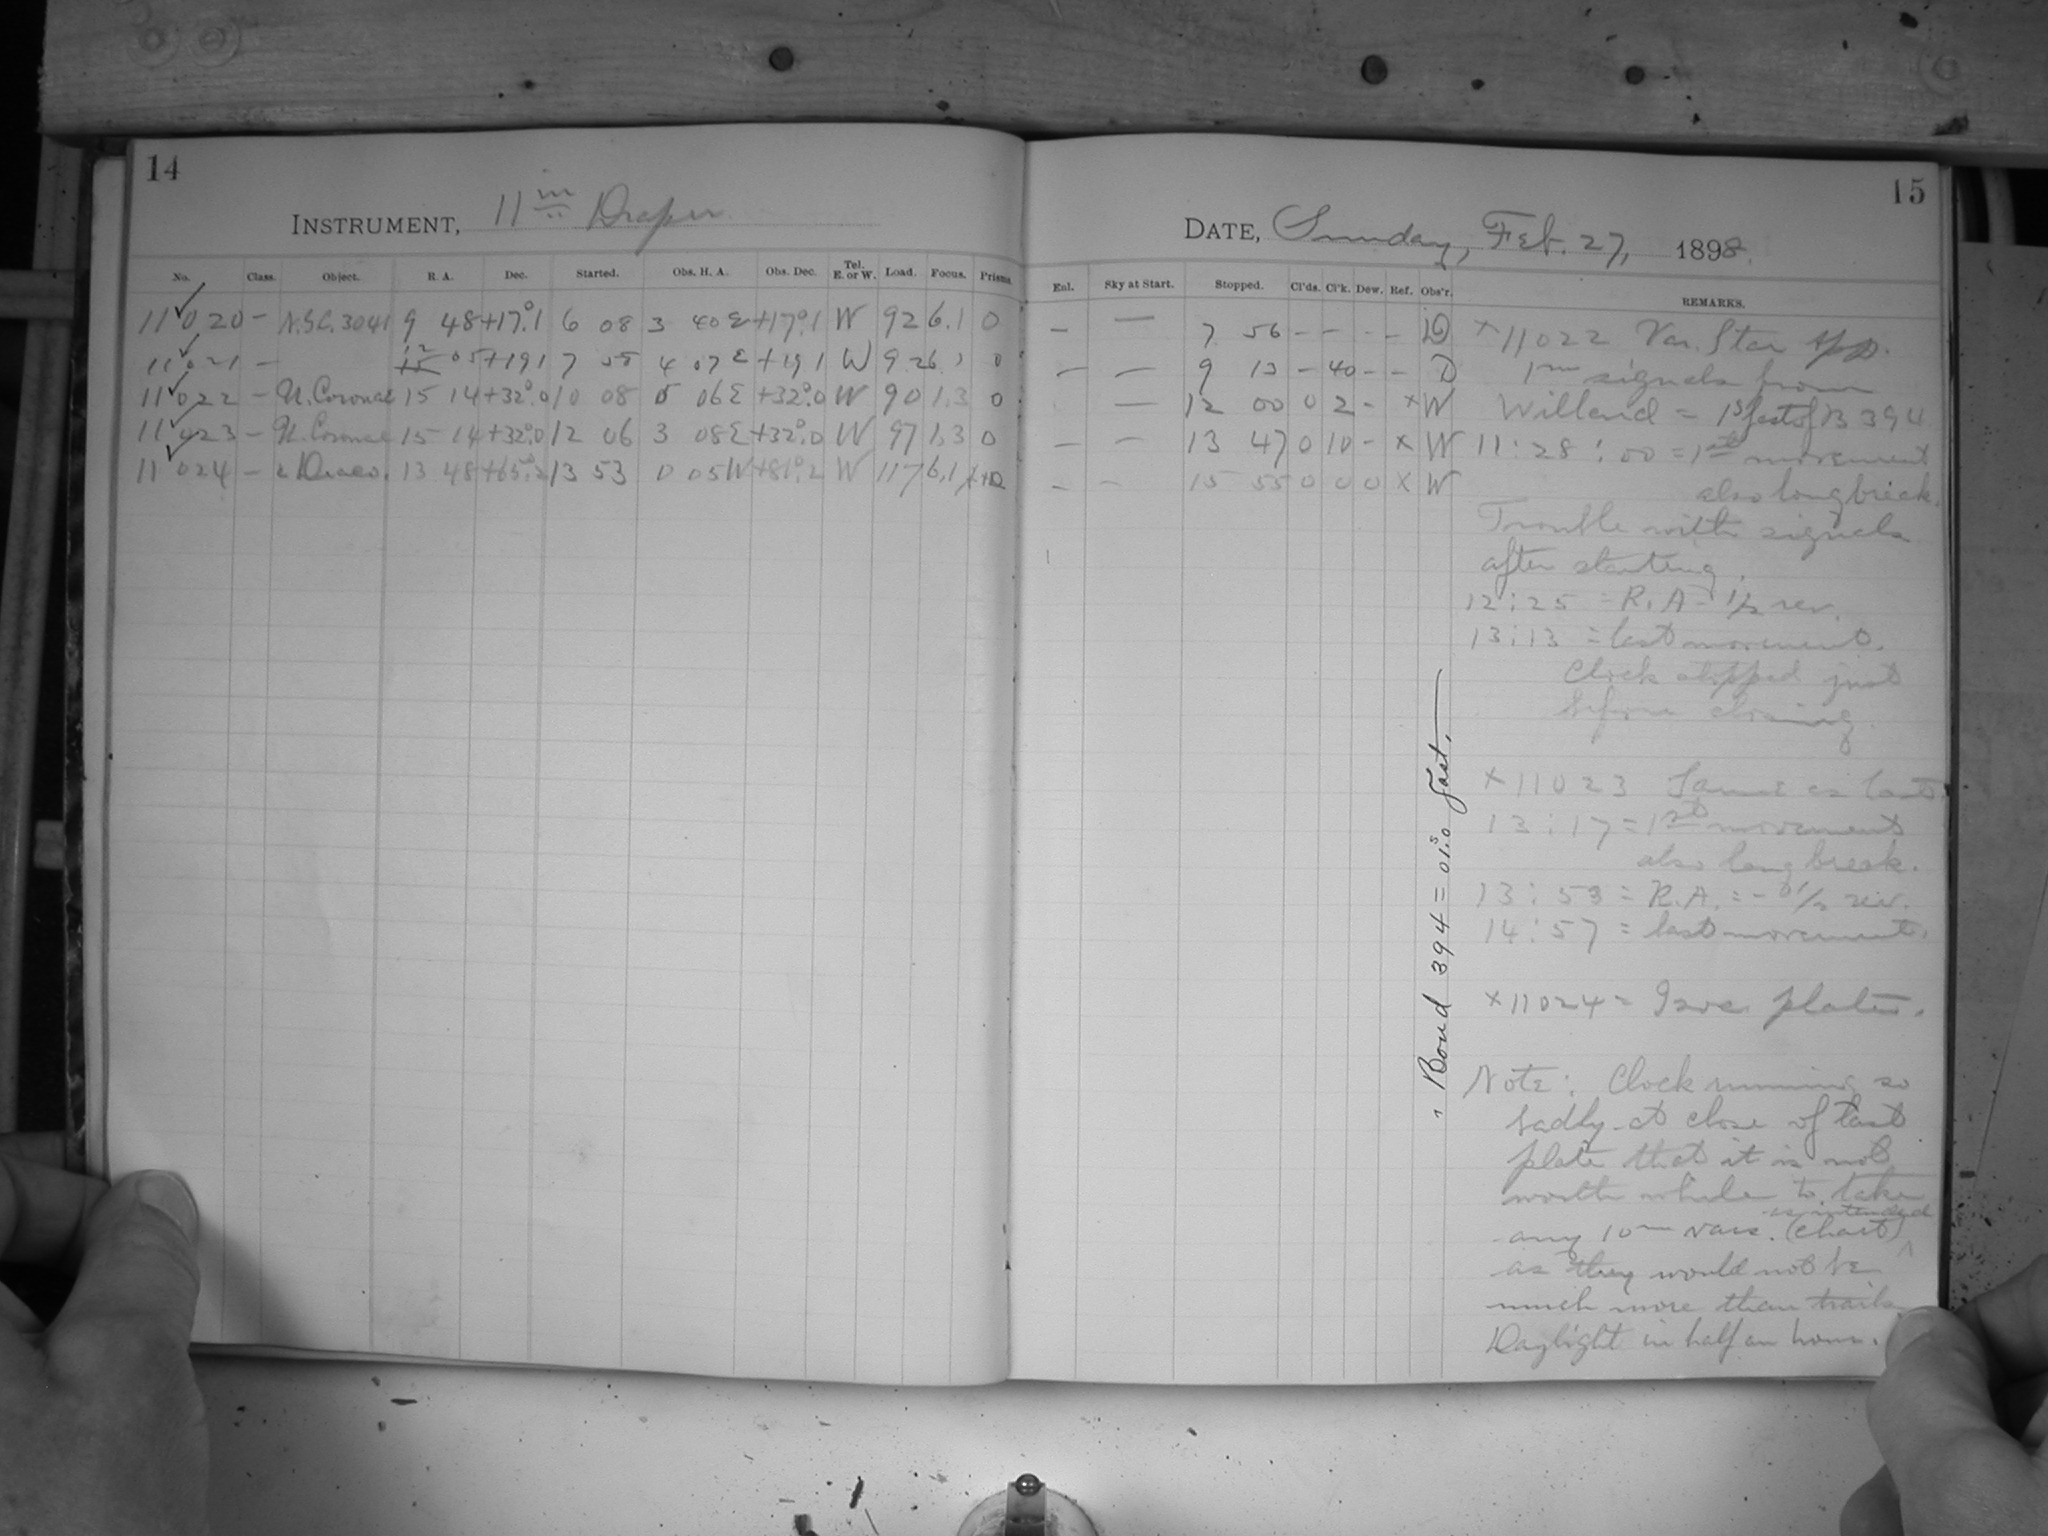 14
INSTRUMENT, 11 in Draper
No. Class. Object. R. A. Dec. Started. Obs. H. A. Obs. Dec. Tel. E. or W. Load. Focus. Prisms
11020 - N.G.C. 3041 9 48 +17°.1 6 08 3 40 E +17°.1 W 92 6.1 0
11021 - 12 05 +19 1 7 58 4 07 E +19 1 W 92 6.1 0
11022 - U. Coronae 15 14 +32°.0 10 08 5 06 E +32°.0 W 90 1.3 0
11023 - U. Coronae 15 14 +32°.0 12 06 3 08 E +32°.0 W 97 1.3 0
11024 - Draco. 13 48 +65°.2 13 53 0 05 W W 117 6.1
15
DATE, Sunday, Feb. 27, 1898.
Enl. Sky at Start. Stopped. Cl'ds. Cl'k. Dew. Ref. Obs'r. REMARKS.
- - 7 56 - - - - D
- - 9 13 - 40 - - D
- 12 00 0 2 - × W
- - 13 47 0 10 - × W
- - 15 55 0 0 0 × W
× 11022 Var. Star App.
1m signals from
Willand = 1s fast of B 394
11:28:00 = 1st movement
also long break.
Trouble with signals
after starting.
12:25 = R.A - 1/2 rev.
13:13 = last movement.
Clock stopped just
before closing.
× 11023 Same as last.
13:17 = 1st movement
also long break.
13:53 = R.A. = - 0 1/2 rev.
14:57 = last movement.
× 11024 = Isoc. plate.
Note: Clock running so
badly at close of last
plate that it is not
worth while to take
as intended
any 10m vars. (chart) ^
as they would not be
much more than trails
Daylight in half an hour.
Bond 394 = 01s.0 fast.